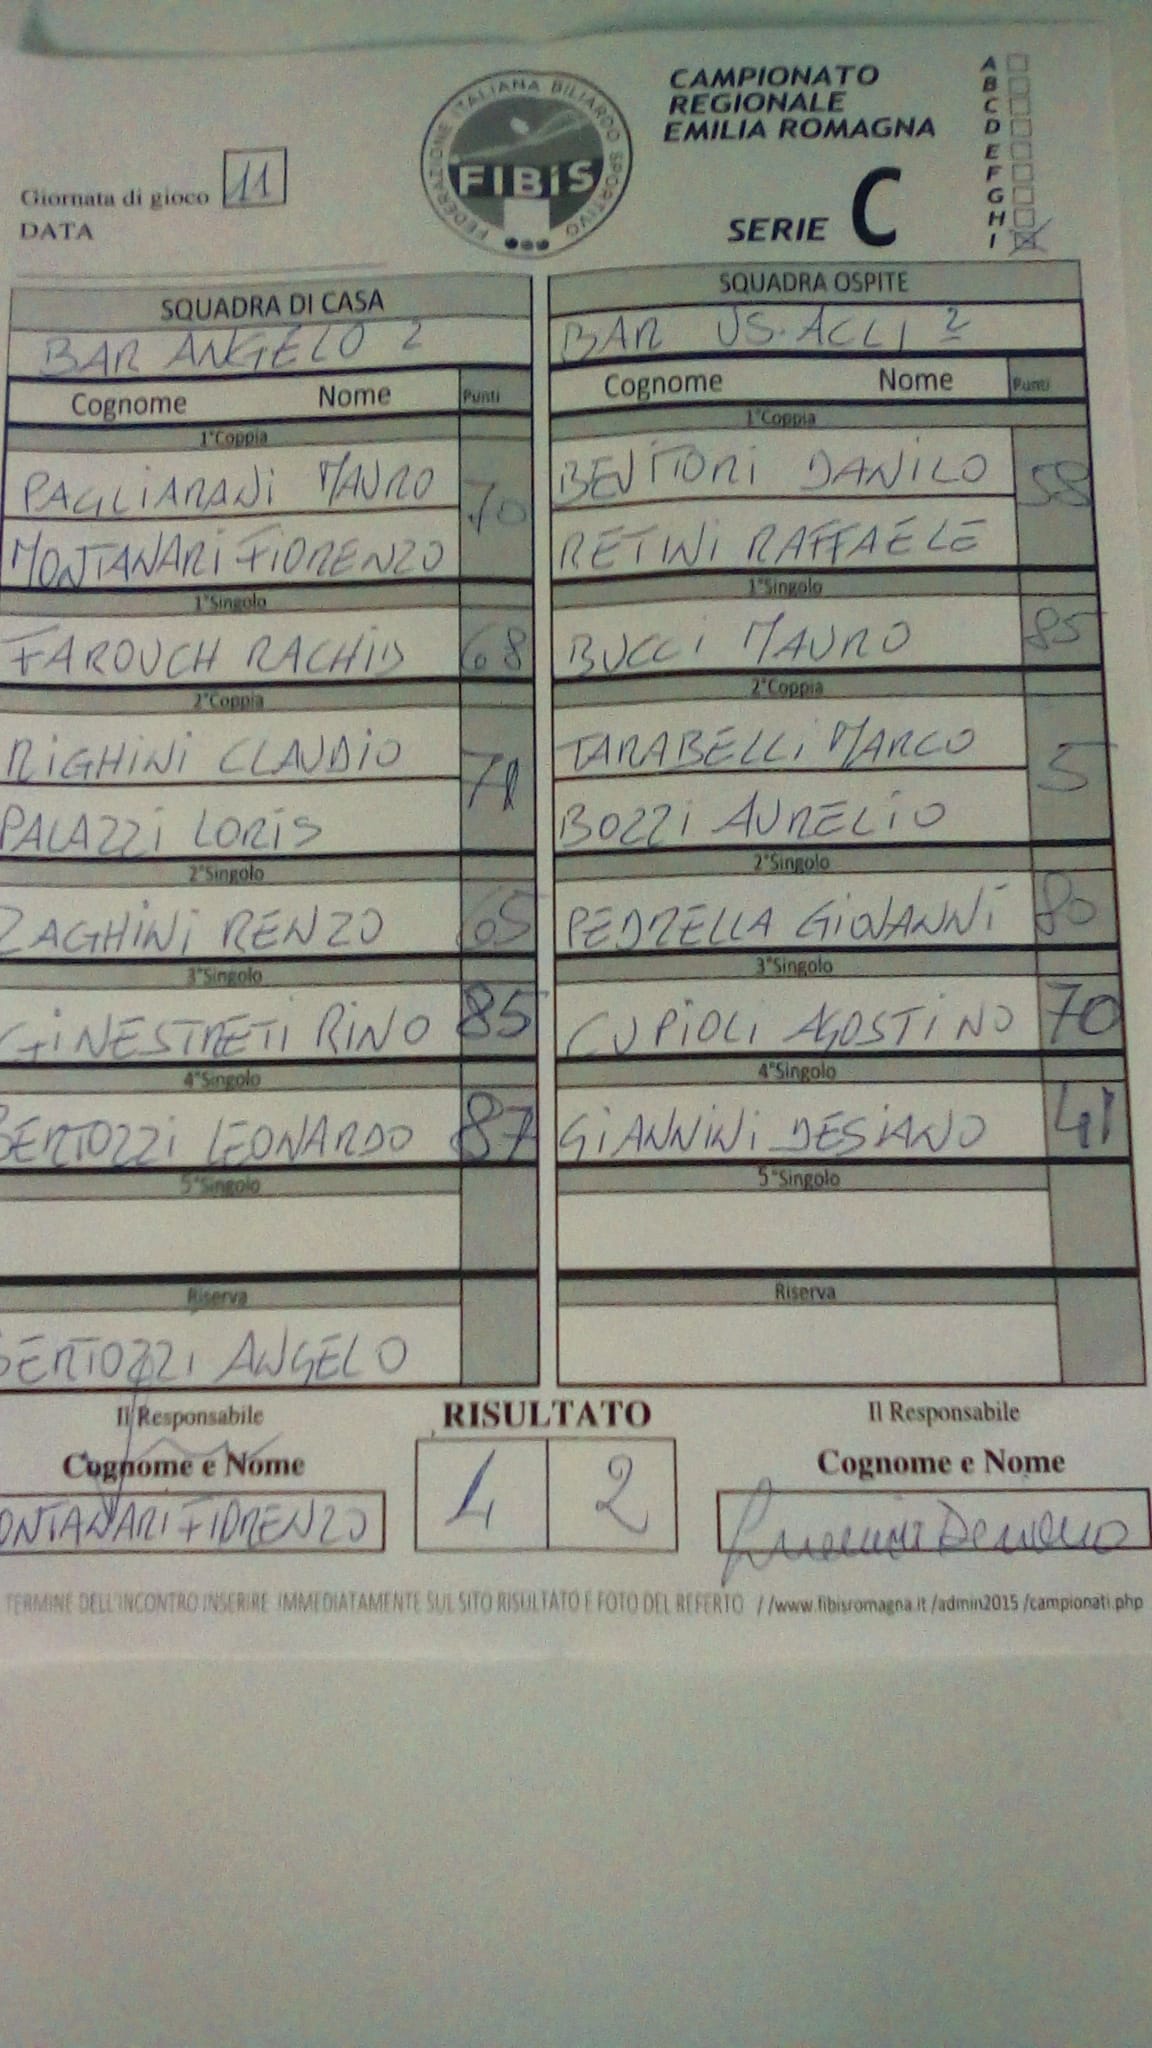 CAMPIONATO
REGIONALE
EMILIA ROMAGNA
SERIE C
A
B
C
D
E
F
G
H
I
FEDERAZIONE ITALIANA BILIARDO SPORTIVO
FIBiS
Giornata di gioco 11
DATA
SQUADRA DI CASA
BAR ANGELO 2
Cognome Nome Punti
1°Coppia
PAGLIARANI MAURO 70
MONTANARI FIORENZO
1°Singolo
FAROUCH RACHID 68
2°Coppia
RIGHINI CLAUDIO
PALAZZI LORIS
2°Singolo
ZAGHINI RENZO 65
3°Singolo
GINESTRETI RINO 85
4°Singolo
BERTOZZI LEONARDO 87
5°Singolo
Riserva
BERTOZZI ANGELO
SQUADRA OSPITE
BAR US.ACLI 2
Cognome Nome Punti
1°Coppia
DANILO 58
RETINI RAFFAELE
1°Singolo
BUCCI MAURO 85
2°Coppia
TARABELLI MARCO 5
BOZZI AURELIO
2°Singolo
PEDRELLA GIOVANNI 80
3°Singolo
CUPIOLI AGOSTINO 70
4°Singolo
GIANNINI DESIANO 41
5°Singolo
Riserva
Il Responsabile
Cognome e Nome
MONTANARI FIORENZO
RISULTATO
4 2
Il Responsabile
Cognome e Nome
TERMINE DELL'INCONTRO INSERIRE IMMEDIATAMENTE SUL SITO RISULTATO E FOTO DEL REFERTO //www.fibisromagna.it /admin2015 /campionati.php